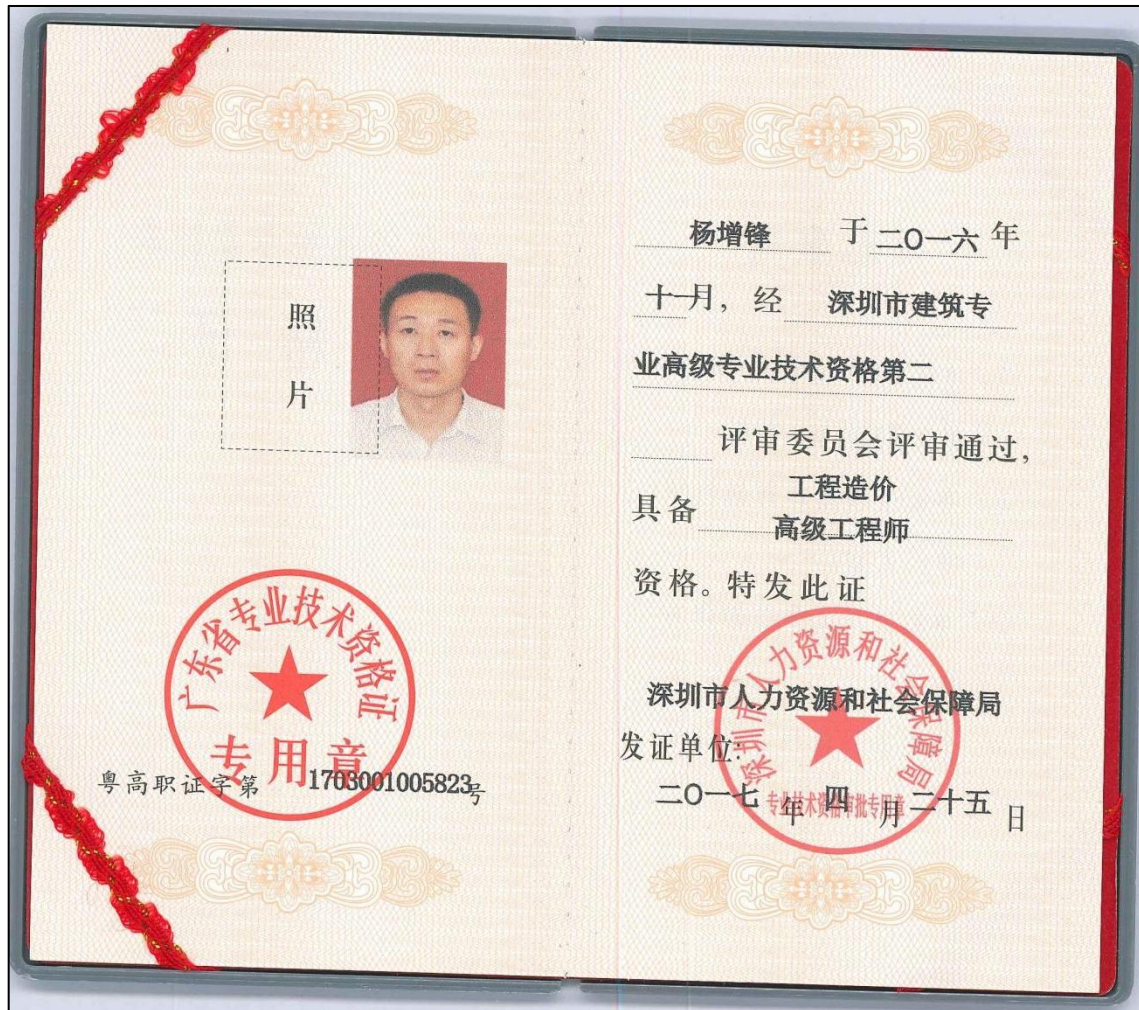 照
片
广东省专业技术资格证
专用章
粤高职证字第 1703001005823号
杨增锋 于 二O一六 年
十一月，经 深圳市建筑专
业高级专业技术资格第二
评审委员会评审通过，
工程造价
具备 高级工程师
资格。特发此证
深圳市人力资源和社会保障局
深圳市人力资源和社会保障局
发证单位：
专业技术资格审批专用章
二O一七 年 四 月 二十五 日